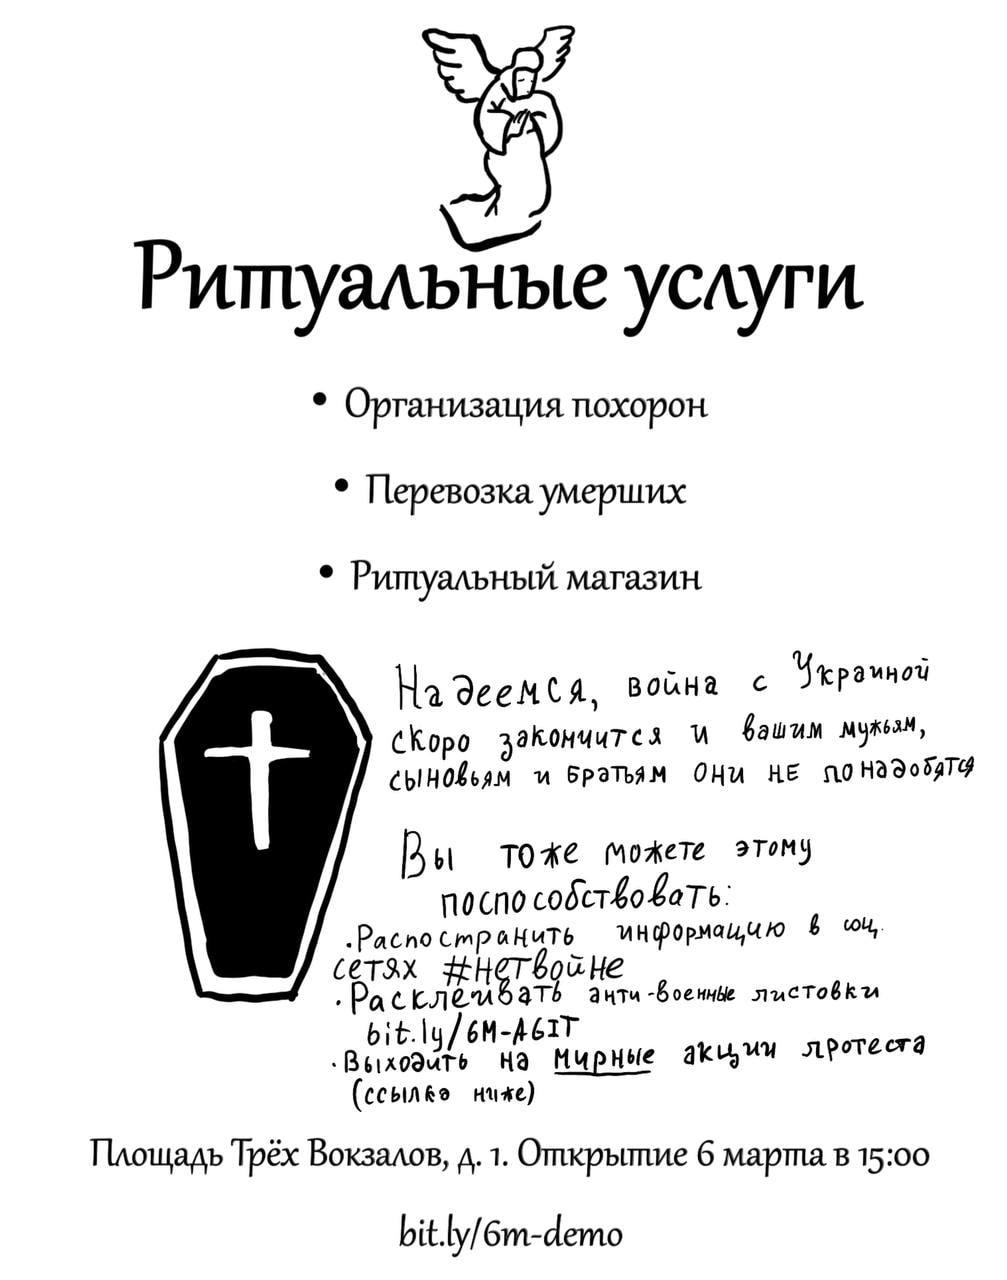 Ритуальные услуги
• Организация похорон
• Перевозка умерших
• Ритуальный магазин
Надеемся, война с Украиной
скоро закончится и вашим мужьям,
сыновьям и братьям они не понадобятся
Вы тоже можете этому
поспособствовать:
·Распостранить информацию в соц.
сетях #нетвойне
·Расклеивать анти-военные листовки
bit.ly/6M-AGIT
·Выходить на мирные акции протеста
(ссылка ниже)
Площадь Трёх Вокзалов, д. 1. Открытие 6 марта в 15:00
bit.ly/6m-demo